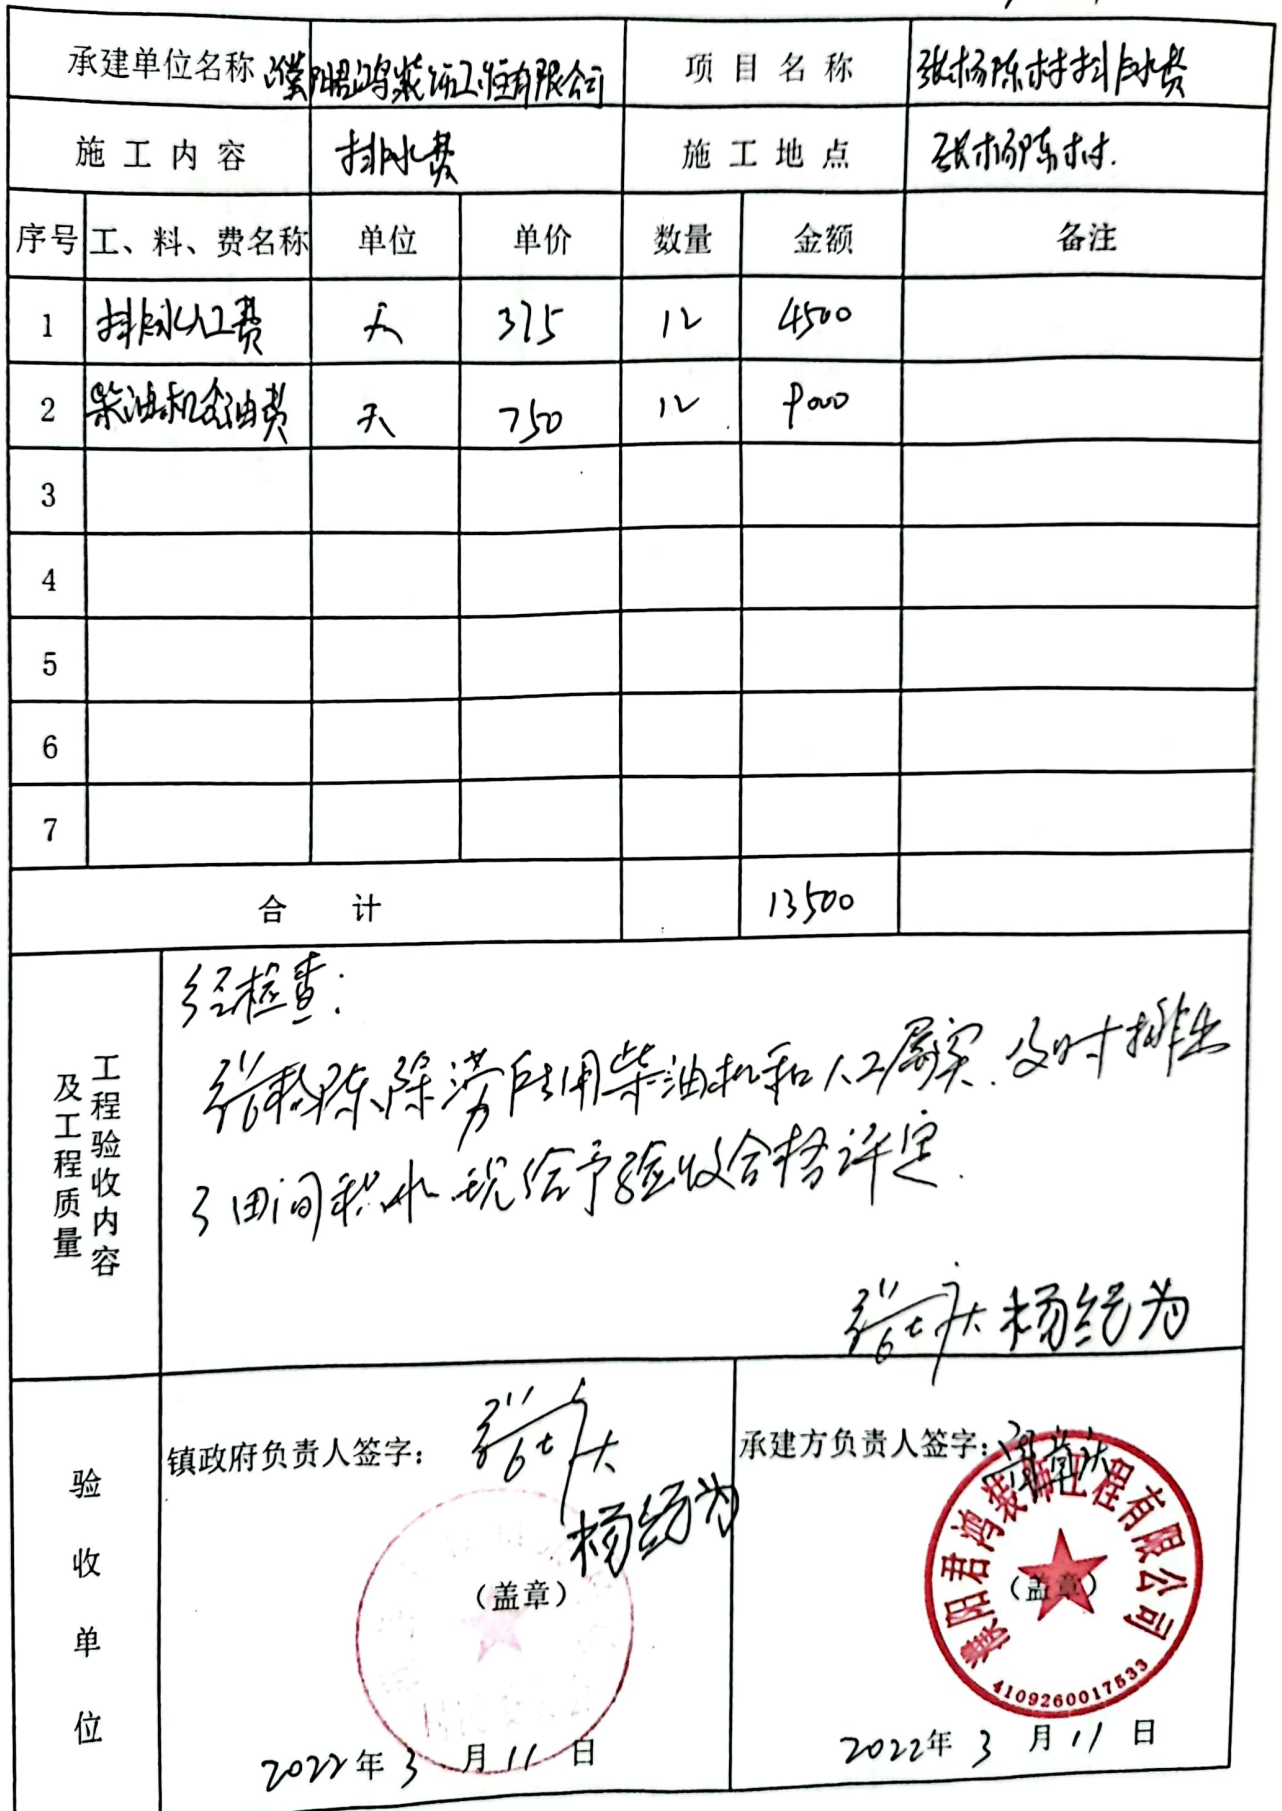 承建单位名称 濮阳君鸿装饰工程有限公司 项目名称 张杨陈村排水费
施工内容 排水费 施工地点 张杨陈村.
序号 工、料、费名称 单位 单价 数量 金额 备注
1 排水人工费 天 375 12 4500
2 柴油机含油费 天 750 12 9000
3
4
5
6
7
合 计 13500
工程验收内容
及工程质量
经检查:
张杨陈除涝所用柴油机和人工属实.及时排出
了田间积水.现给予验收合格评定.
张士庆 杨绍为
验收单位
镇政府负责人签字: 张士庆
杨绍为
(盖章)
2022年3月11日
承建方负责人签字:
濮阳君鸿装饰工程有限公司
(盖章)
4109260017533
2022年3月11日